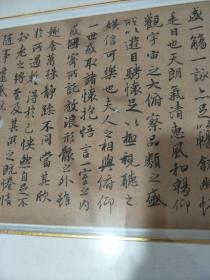 盛一觴一詠亦足以暢叙幽情
是日也天朗氣清惠風和暢仰
觀宇宙之大俯察品類之盛
所以遊目騁懷足以極視聽之
娛信可樂也夫人之相與俯仰
一世或取諸懷抱悟言一室之內
或因寄所託放浪形骸之外雖
趣舍萬殊靜躁不同當其欣
於所遇暫得於己怏然自足不
知老之將至及其所之既惓情
隨事遷感慨